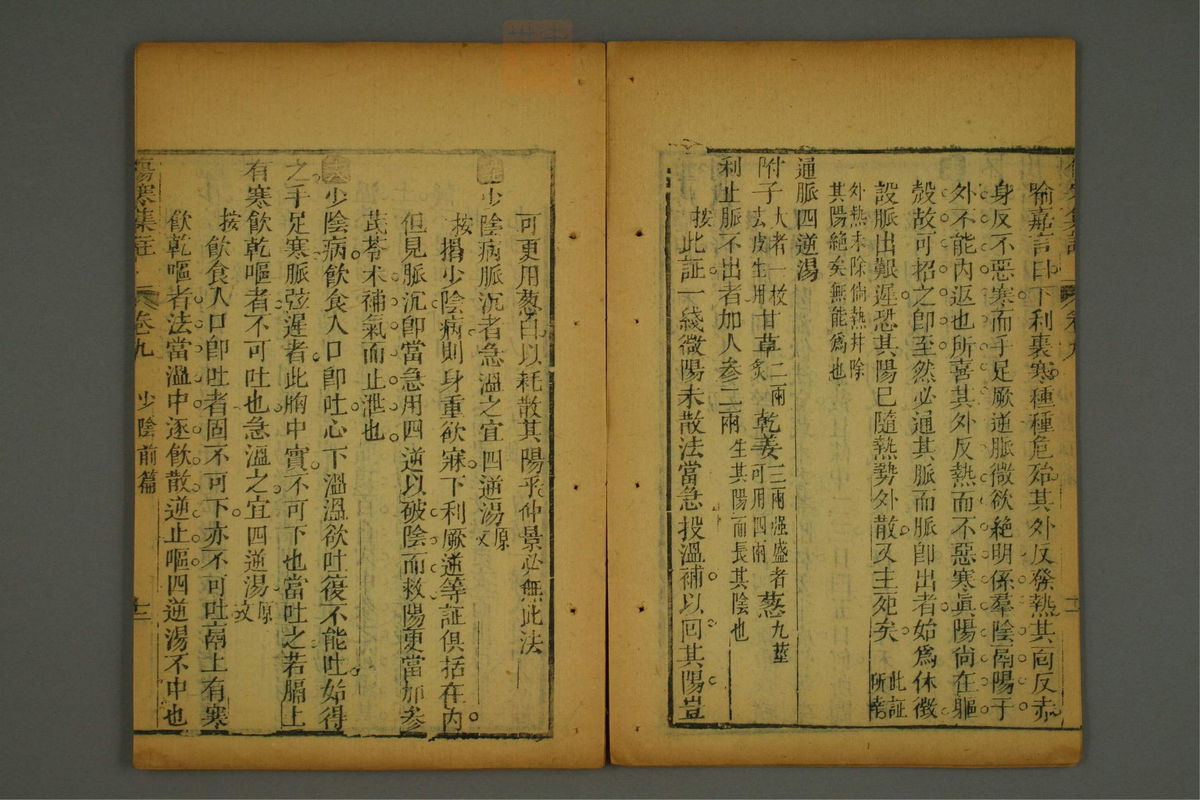 喻嘉言曰下利裏寒種種危殆其外反發熱其面反赤
身反不惡寒而手足厥逆脈微欲絶明係羣陰鬲陽于
外不能內返也所喜其外反熱而不惡寒眞陽尚在軀
殼故可招之卽至然必通其脈而脈卽出者始爲休徵
設脈出艱遲恐其陽已隨熱勢外散又主死矣此証所幸
外熱未除倘熱幷除
其陽絶矣無能爲也
通脈四逆湯
附子大者一枚去皮生用甘草二兩炙乾姜三兩强盛者可用四兩葱九莖
利止脈不出者加人參二兩生其陽而長其陰也
按此証一綫微陽未散法當急投溫補以回其陽豈
可更用葱白以耗散其陽乎仲景必無此法
少陰病脈沉者急溫之宜四逆湯原文
按揭少陰病則身重欲寐下利厥逆等証俱括在內
但見脈沉卽當急用四逆以破陰而救陽更當加參
芪苓术補氣而止泄也
少陰病飲食入口卽吐心下溫溫欲吐復不能吐始得
之手足寒脈弦遲者此胸中實不可下也當吐之若膈上
有寒飲乾嘔者不可吐也急溫之宜四逆湯原文
按飲食入口卽吐者固不可下亦不可吐鬲上有寒
飲乾嘔者法當溫中逐飲散逆止嘔四逆湯不中也
傷寒集註 卷九 少陰前篇 十二